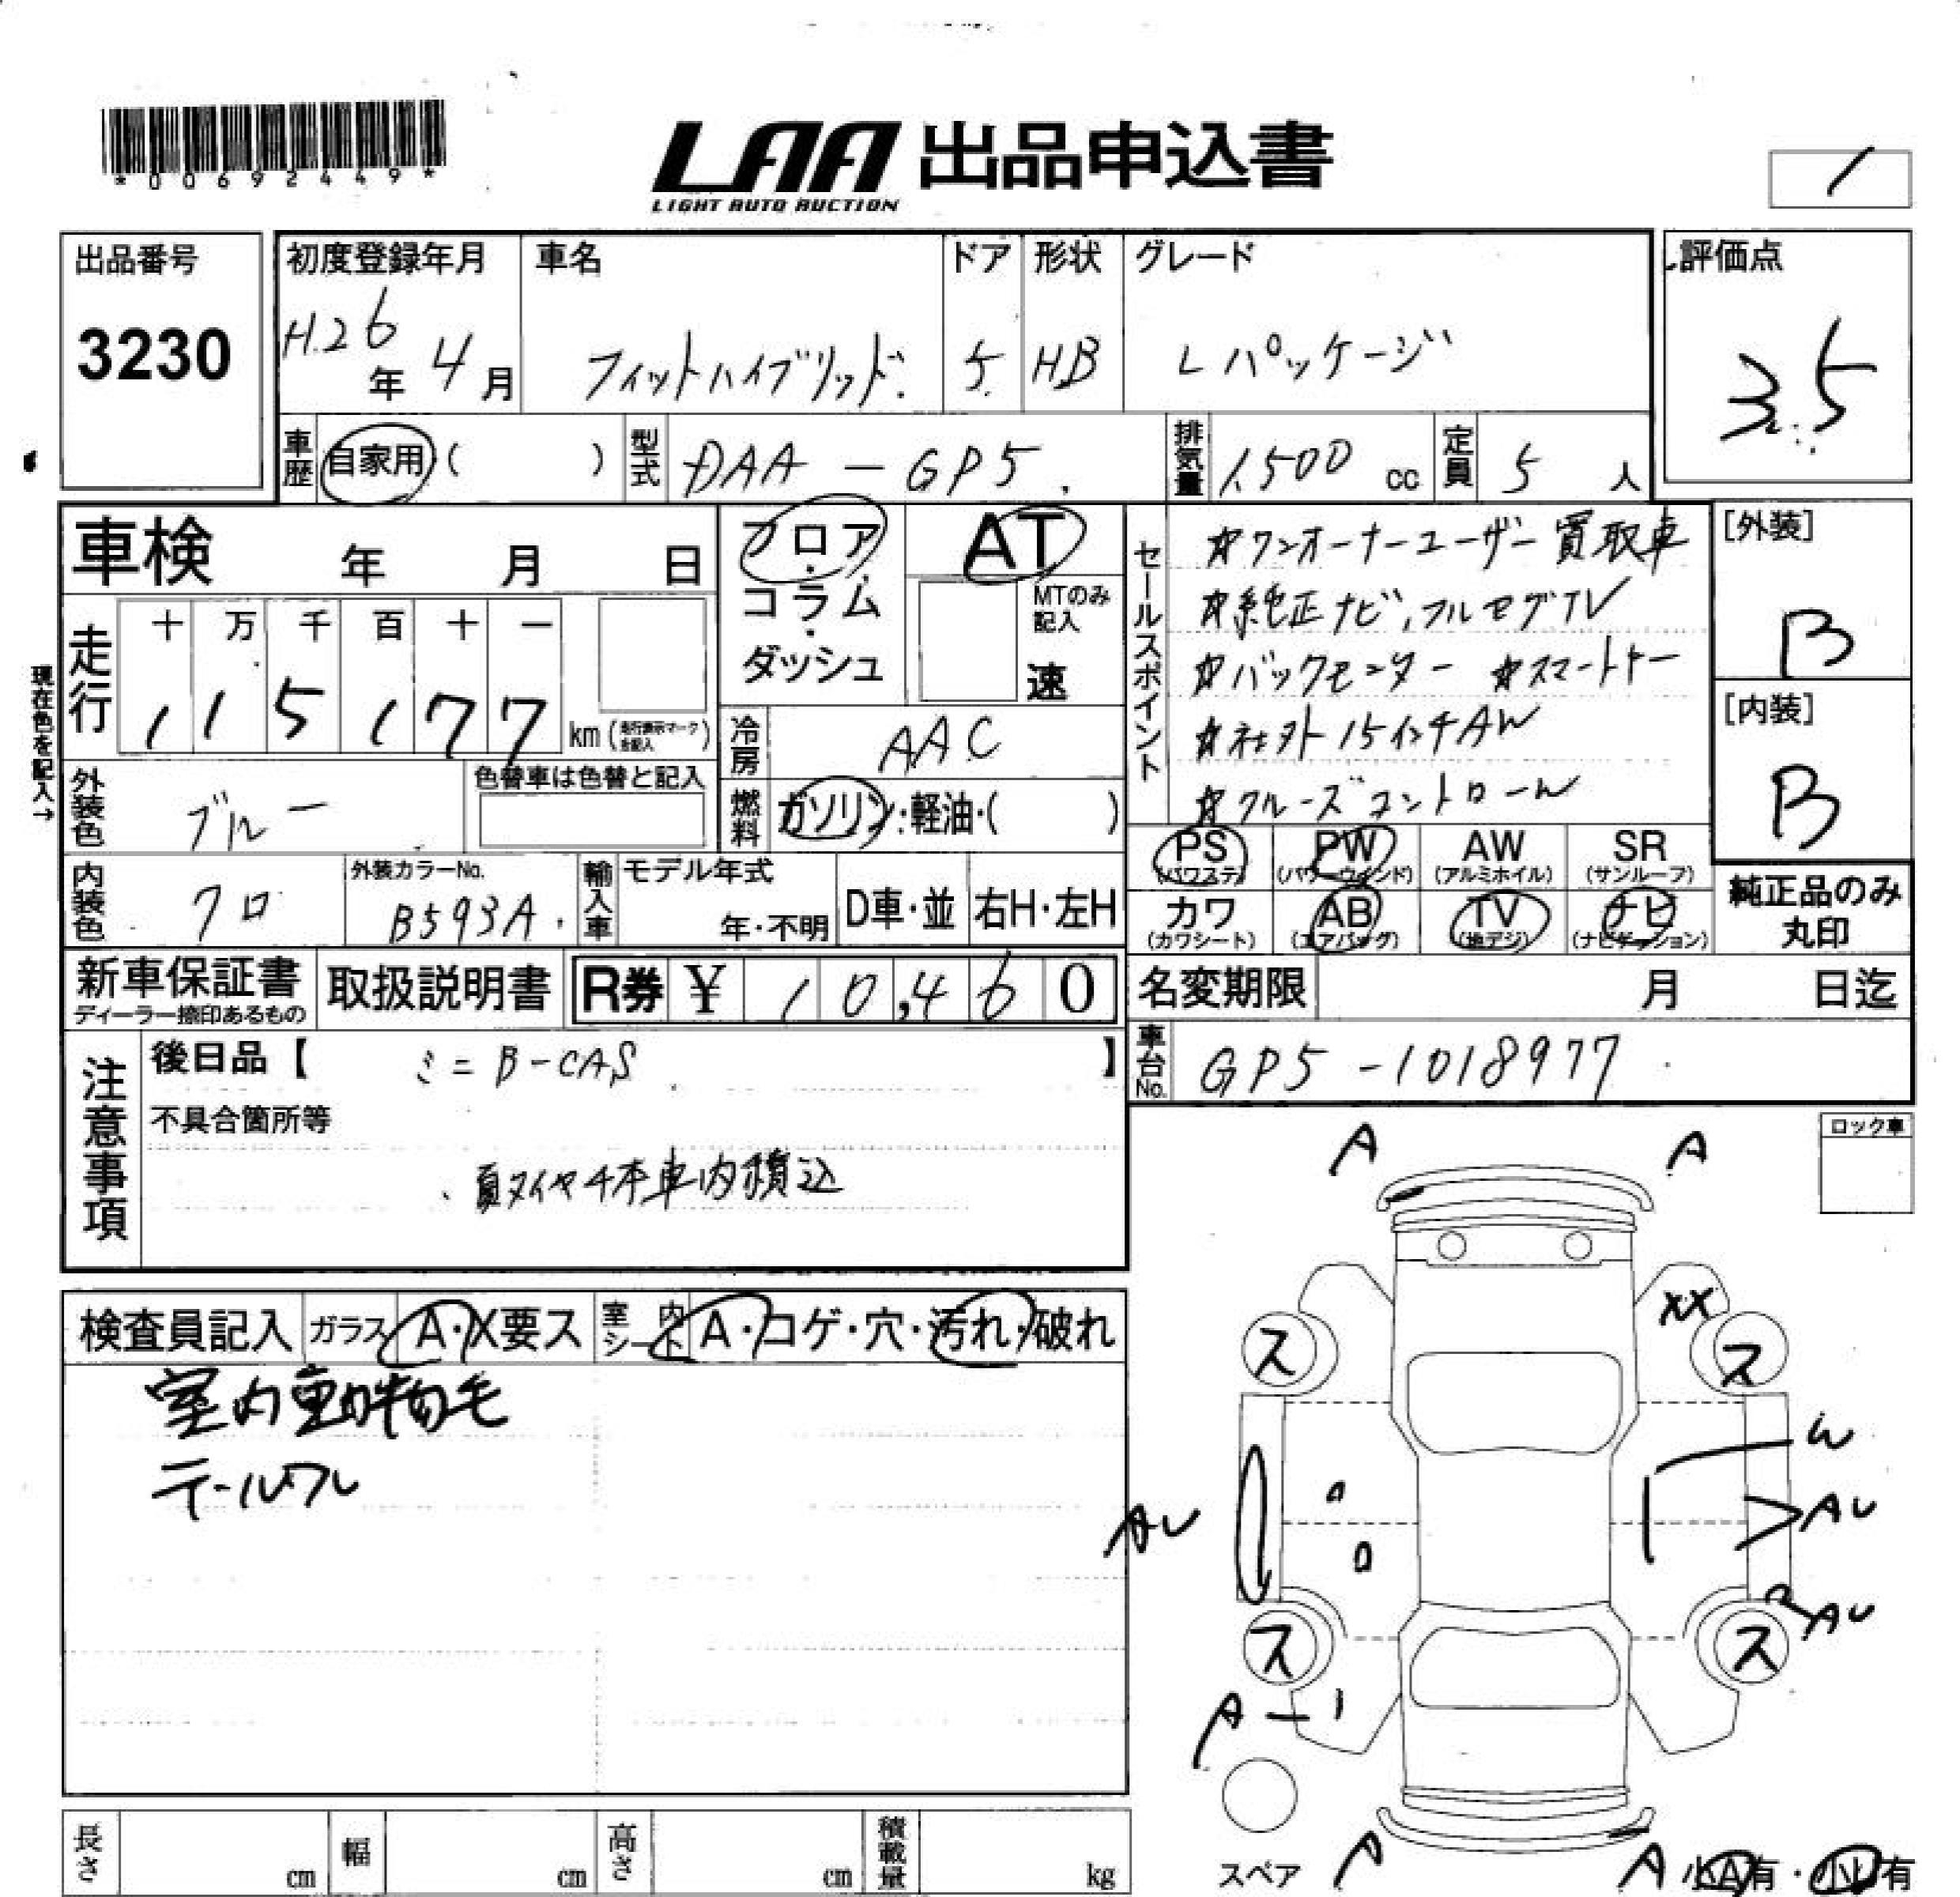 *00692449*
LAA 出品申込書
LIGHT AUTO AUCTION
出品番号
3230
初度登録年月
H.26年 4月
車名
フィットハイブリッド.
ドア
5
形状
HB
グレード
Lパッケージ
評価点
3.5
車歴
自家用 ( )
型式
DAA - GP5
排気量
1,500 cc
定員
5 人
車検 年 月 日
走行
十 万 千 百 十 一
1 1 5 1 7 7 km (走行表示マークを記入)
現在色を記入→
外装色
ブルー
色替車は色替と記入
内装色
クロ
外装カラーNo.
B593A
輸入車
モデル年式
年・不明
D車・並
右H・左H
フロア・コラム・ダッシュ
AT
MTのみ記入
速
冷房
AAC
燃料
ガソリン・軽油・( )
セールスポイント
☆ワンオーナーユーザー買取車
☆純正ナビ,フルセグTV
☆バックモニター ☆スマートキー
☆社外15インチAW
☆クルーズコントロール
[外装]
B
[内装]
B
PS (パワステ)
PW (パワーウィンド)
AW (アルミホイル)
SR (サンルーフ)
カワ (カワシート)
AB (エアバッグ)
TV (地デジ)
ナビ (ナビゲーション)
純正品のみ丸印
新車保証書
ディーラー捺印あるもの
取扱説明書
R券 ¥ 10,460
名変期限 月 日迄
車台No.
GP5-1018977
注意事項
後日品【 ミニB-CAS 】
不具合箇所等
夏タイヤ4本車内積込
ロック車
検査員記入
ガラス A・X要ス
室内シート A・コゲ・穴・汚れ・破れ
室内動物毛
テールワレ
A A
XX
ス ス
W
AU AU
AU
ス ス
A
スペア
A A
小A有・小U有
長さ cm
幅 cm
高さ cm
積載量 kg